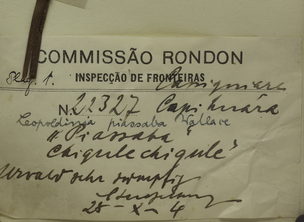 COMMISSÃO RONDON
INSPECÇÃO DE FRONTEIRAS
N. 22327 Capihuára
Leopoldinia piassaba Wallace
"Piassaba"
"Chiquichique"
Urwald sehr sumpfig
28-X-4